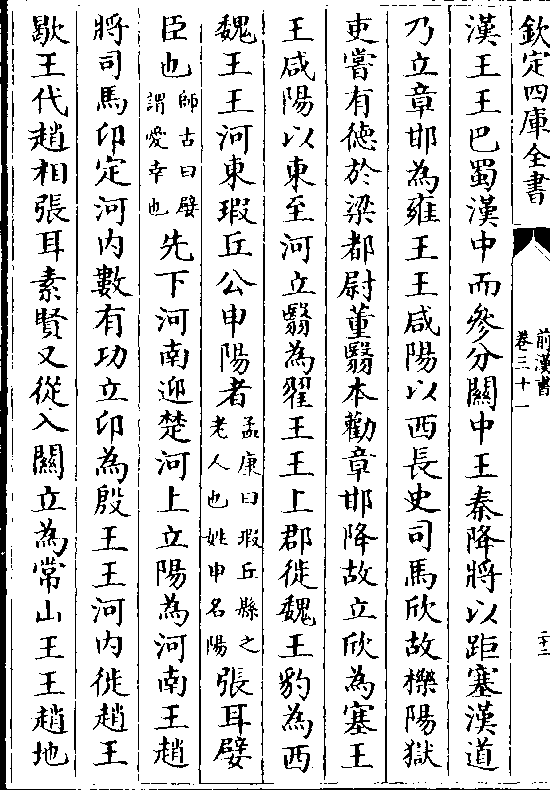 欽定四庫全書
前漢書
卷三十一
二十二
漢王王巴蜀漢中而參分關中王秦降將以距塞漢道
乃立章邯為雍王王咸陽以西長史司馬欣故櫟陽獄
吏嘗有德於梁都尉董翳本勸章邯降故立欣為塞王
王咸陽以東至河立翳為翟王王上郡徙魏王豹為西
魏王王河東瑕丘公申陽者孟康曰瑕丘縣之老人也姓申名陽張耳嬖
臣也師古曰嬖謂愛幸也先下河南迎楚河上立陽為河南王趙
將司馬卬定河內數有功立卬為殷王王河內徙趙王
歇王代趙相張耳素賢又從入關立為常山王王趙地